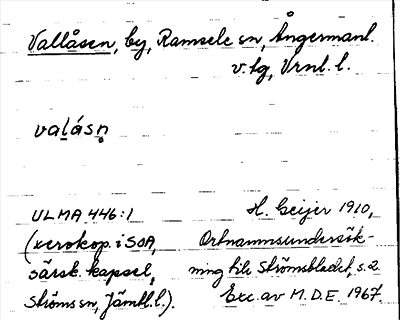 Vallåsen, by, Ramsele sn, Ångermanl.
v. tg, Vrnl. l.
valásn̥
ULMA 446:1
(xerokop. i SOA,
särsk. kapsel,
Ströms sn, Jämtl. l.).
H. Geijer 1910,
Ortnamnsundersök-
ning till Strömsbladet, s. 2
Exc. av M.D.E. 1967.